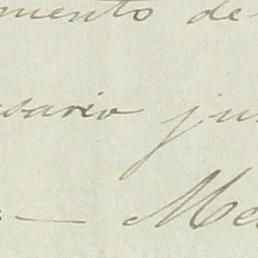 mento de
sario ju
— Me